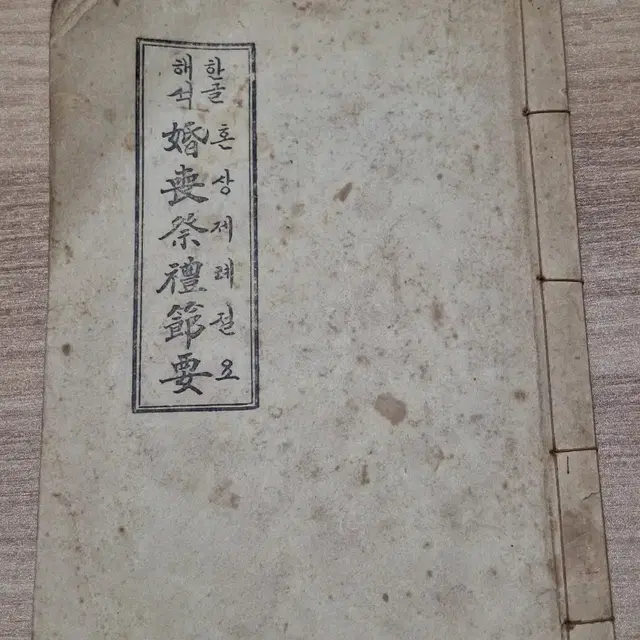 한글 혼상제례절요
해석 婚喪祭禮節要